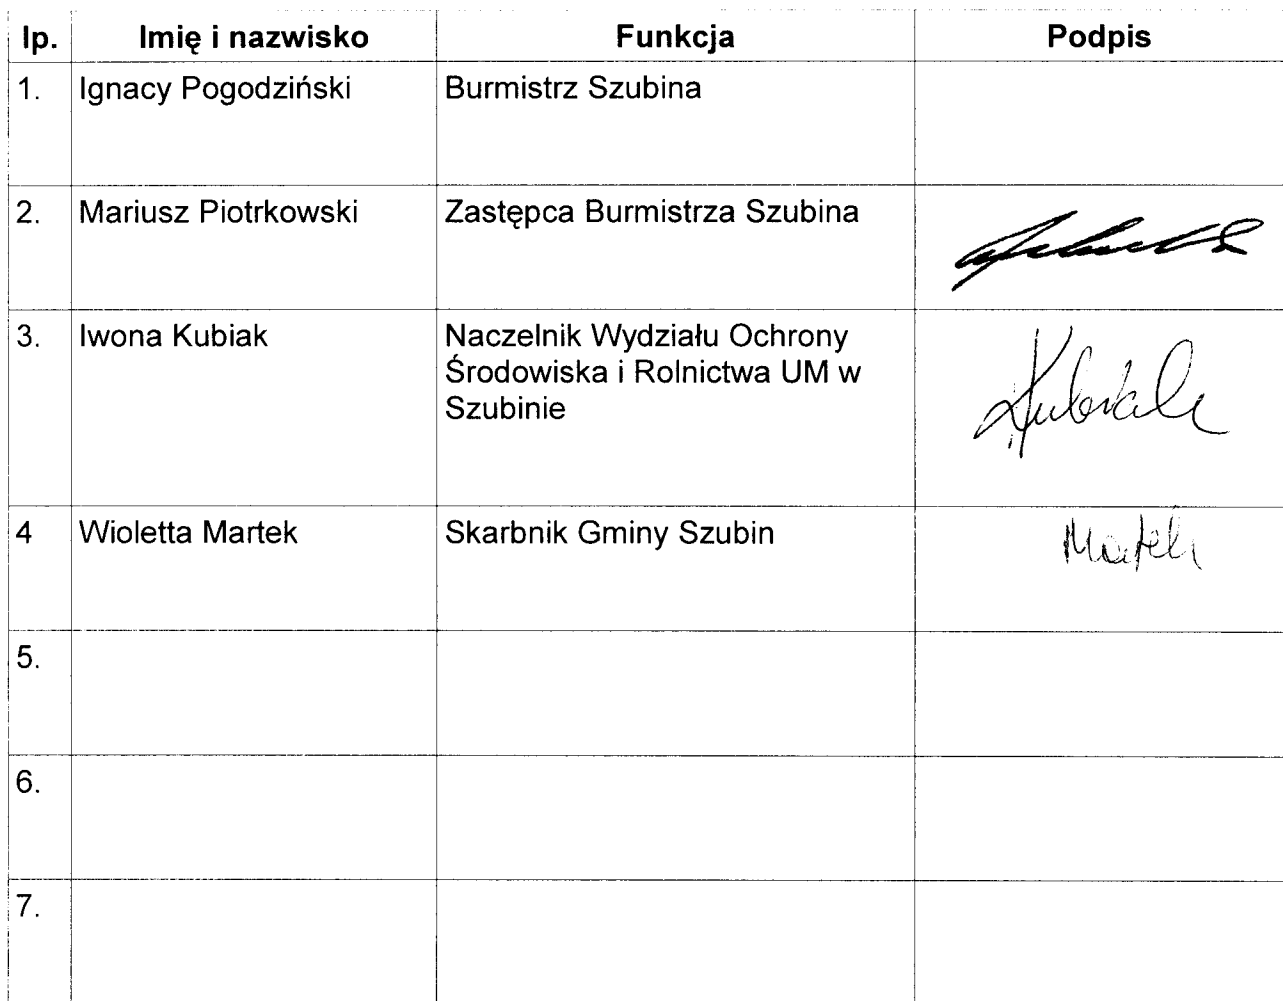 lp. Imię i nazwisko Funkcja Podpis
1. Ignacy Pogodziński Burmistrz Szubina
2. Mariusz Piotrkowski Zastępca Burmistrza Szubina
3. Iwona Kubiak Naczelnik Wydziału Ochrony
Środowiska i Rolnictwa UM w
Szubinie
Kubiak
4 Wioletta Martek Skarbnik Gminy Szubin Martek
5.
6.
7.